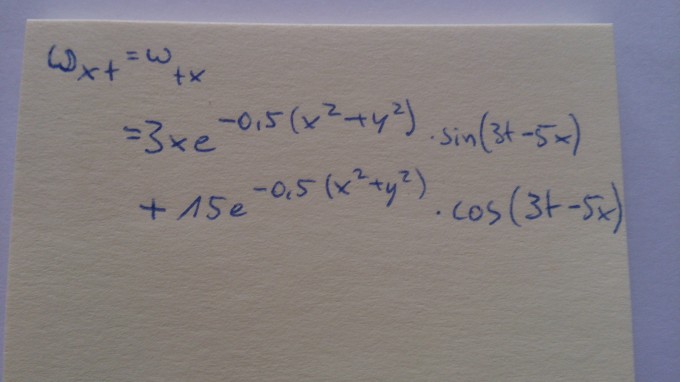 ω_xt = ω_tx
= 3xe^(-0,5(x²+y²)) · sin(3t-5x)
+ 15e^(-0,5(x²+y²)) · cos(3t-5x)